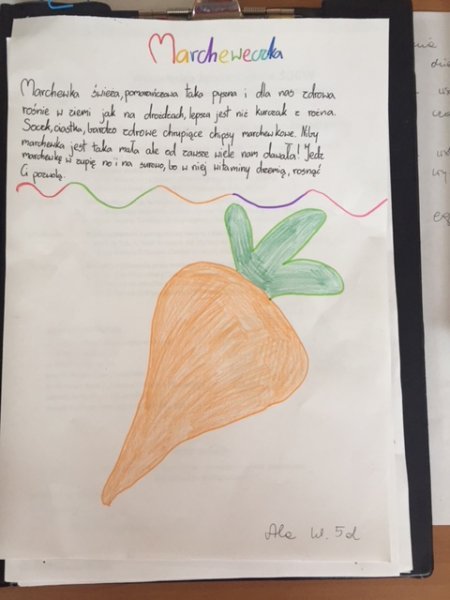 Marcheweczka
Marchewka świeża, pomarańczowa taka pyszna i dla nas zdrowa
rośnie w ziemi jak na drożdżach, lepsza jest niż kurczak z rożna.
Soczek, ciastka, bardzo zdrowe chrupiące chipsy marchewkowe. Niby
marchewka jest taka mała ale od zawsze wiele nam dawała! Jedz
marchewkę w zupie no i na surowo, bo w niej witaminy drzemią, rosnąć
Ci pozwolą.
Ala W. 5d